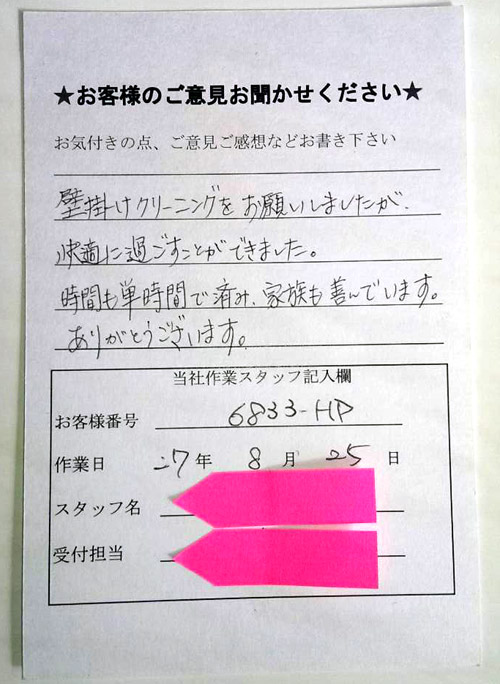 ★お客様のご意見お聞かせください★
お気付きの点、ご意見ご感想などお書き下さい
壁掛けクリーニングをお願いしましたが、
快適に過ごすことができました。
時間も単時間で済み、家族も善んでいます。
ありがとうございます。
当社作業スタッフ記入欄
お客様番号 6833-HP
作業日 27年 8月 25日
スタッフ名
受付担当